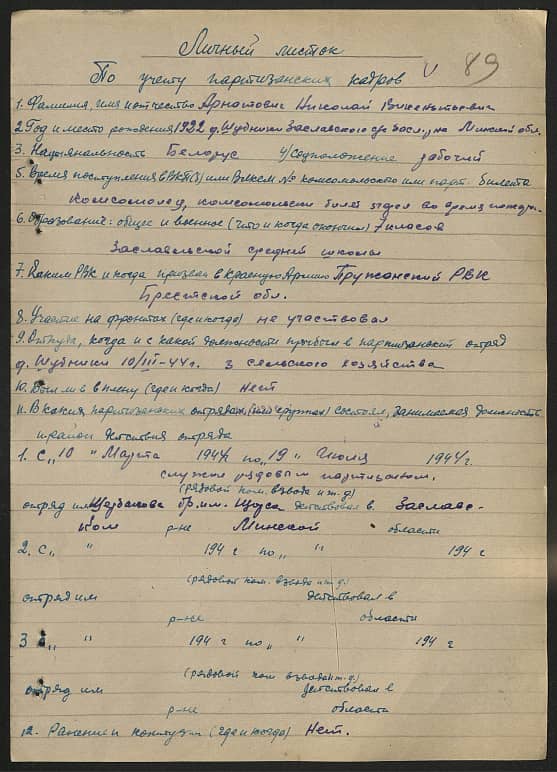 Личный листок
По учету партизанских кадров V 89
1. Фамилия, имя и отчество Арнатович Николай Викентьевич
2. Год и место рождения 1922 д. Шубники Заславского с/с Засл. р-на Минской обл.
3. Национальность Белорус 4/соцположение рабочий
5. Время поступления в ВКП(б) или ВЛКСМ № комсомольского или парт. билета
Комсомолец, комсомольский билет отдел во время
6. Образование: общее и военное (что и когда окончил) 7 классов
Заславльской средней школы
7. Каким РВК и когда призван в Красную Армию Пружанский РВК
Брестской обл.
8. Участие на фронтах (где и когда) не участвовал
9. Откуда, когда и с какой должности прибыл в партизанский отряд
д. Шубники 10/III-44 г. з сельского хозяйства
10. Был ли в плену (где и когда) Нет
11. В каких партизанских отрядах, (или группах) состоял, занимаемая должность
и район действия отряда
1. С „10 " Марта 1944 г по „19 " Июля 1944 г.
служил рядовым партизаном.
(рядовой ком. взвода и т. д)
отряд им Щербакова бр. им. Щорса действовал в Заславс-
ком р-не Минской области
2. С „ " 194 г по „ " 194 г
(рядовой ком. взвода и т. д.)
отряд им действовал в
р-не области
3 С „ " 194 г по „ " 194 г
(рядовой ком взвода и т. д.)
отряд им действовал в
р-не области
12. Ранение и контузия (где и когда) Нет.